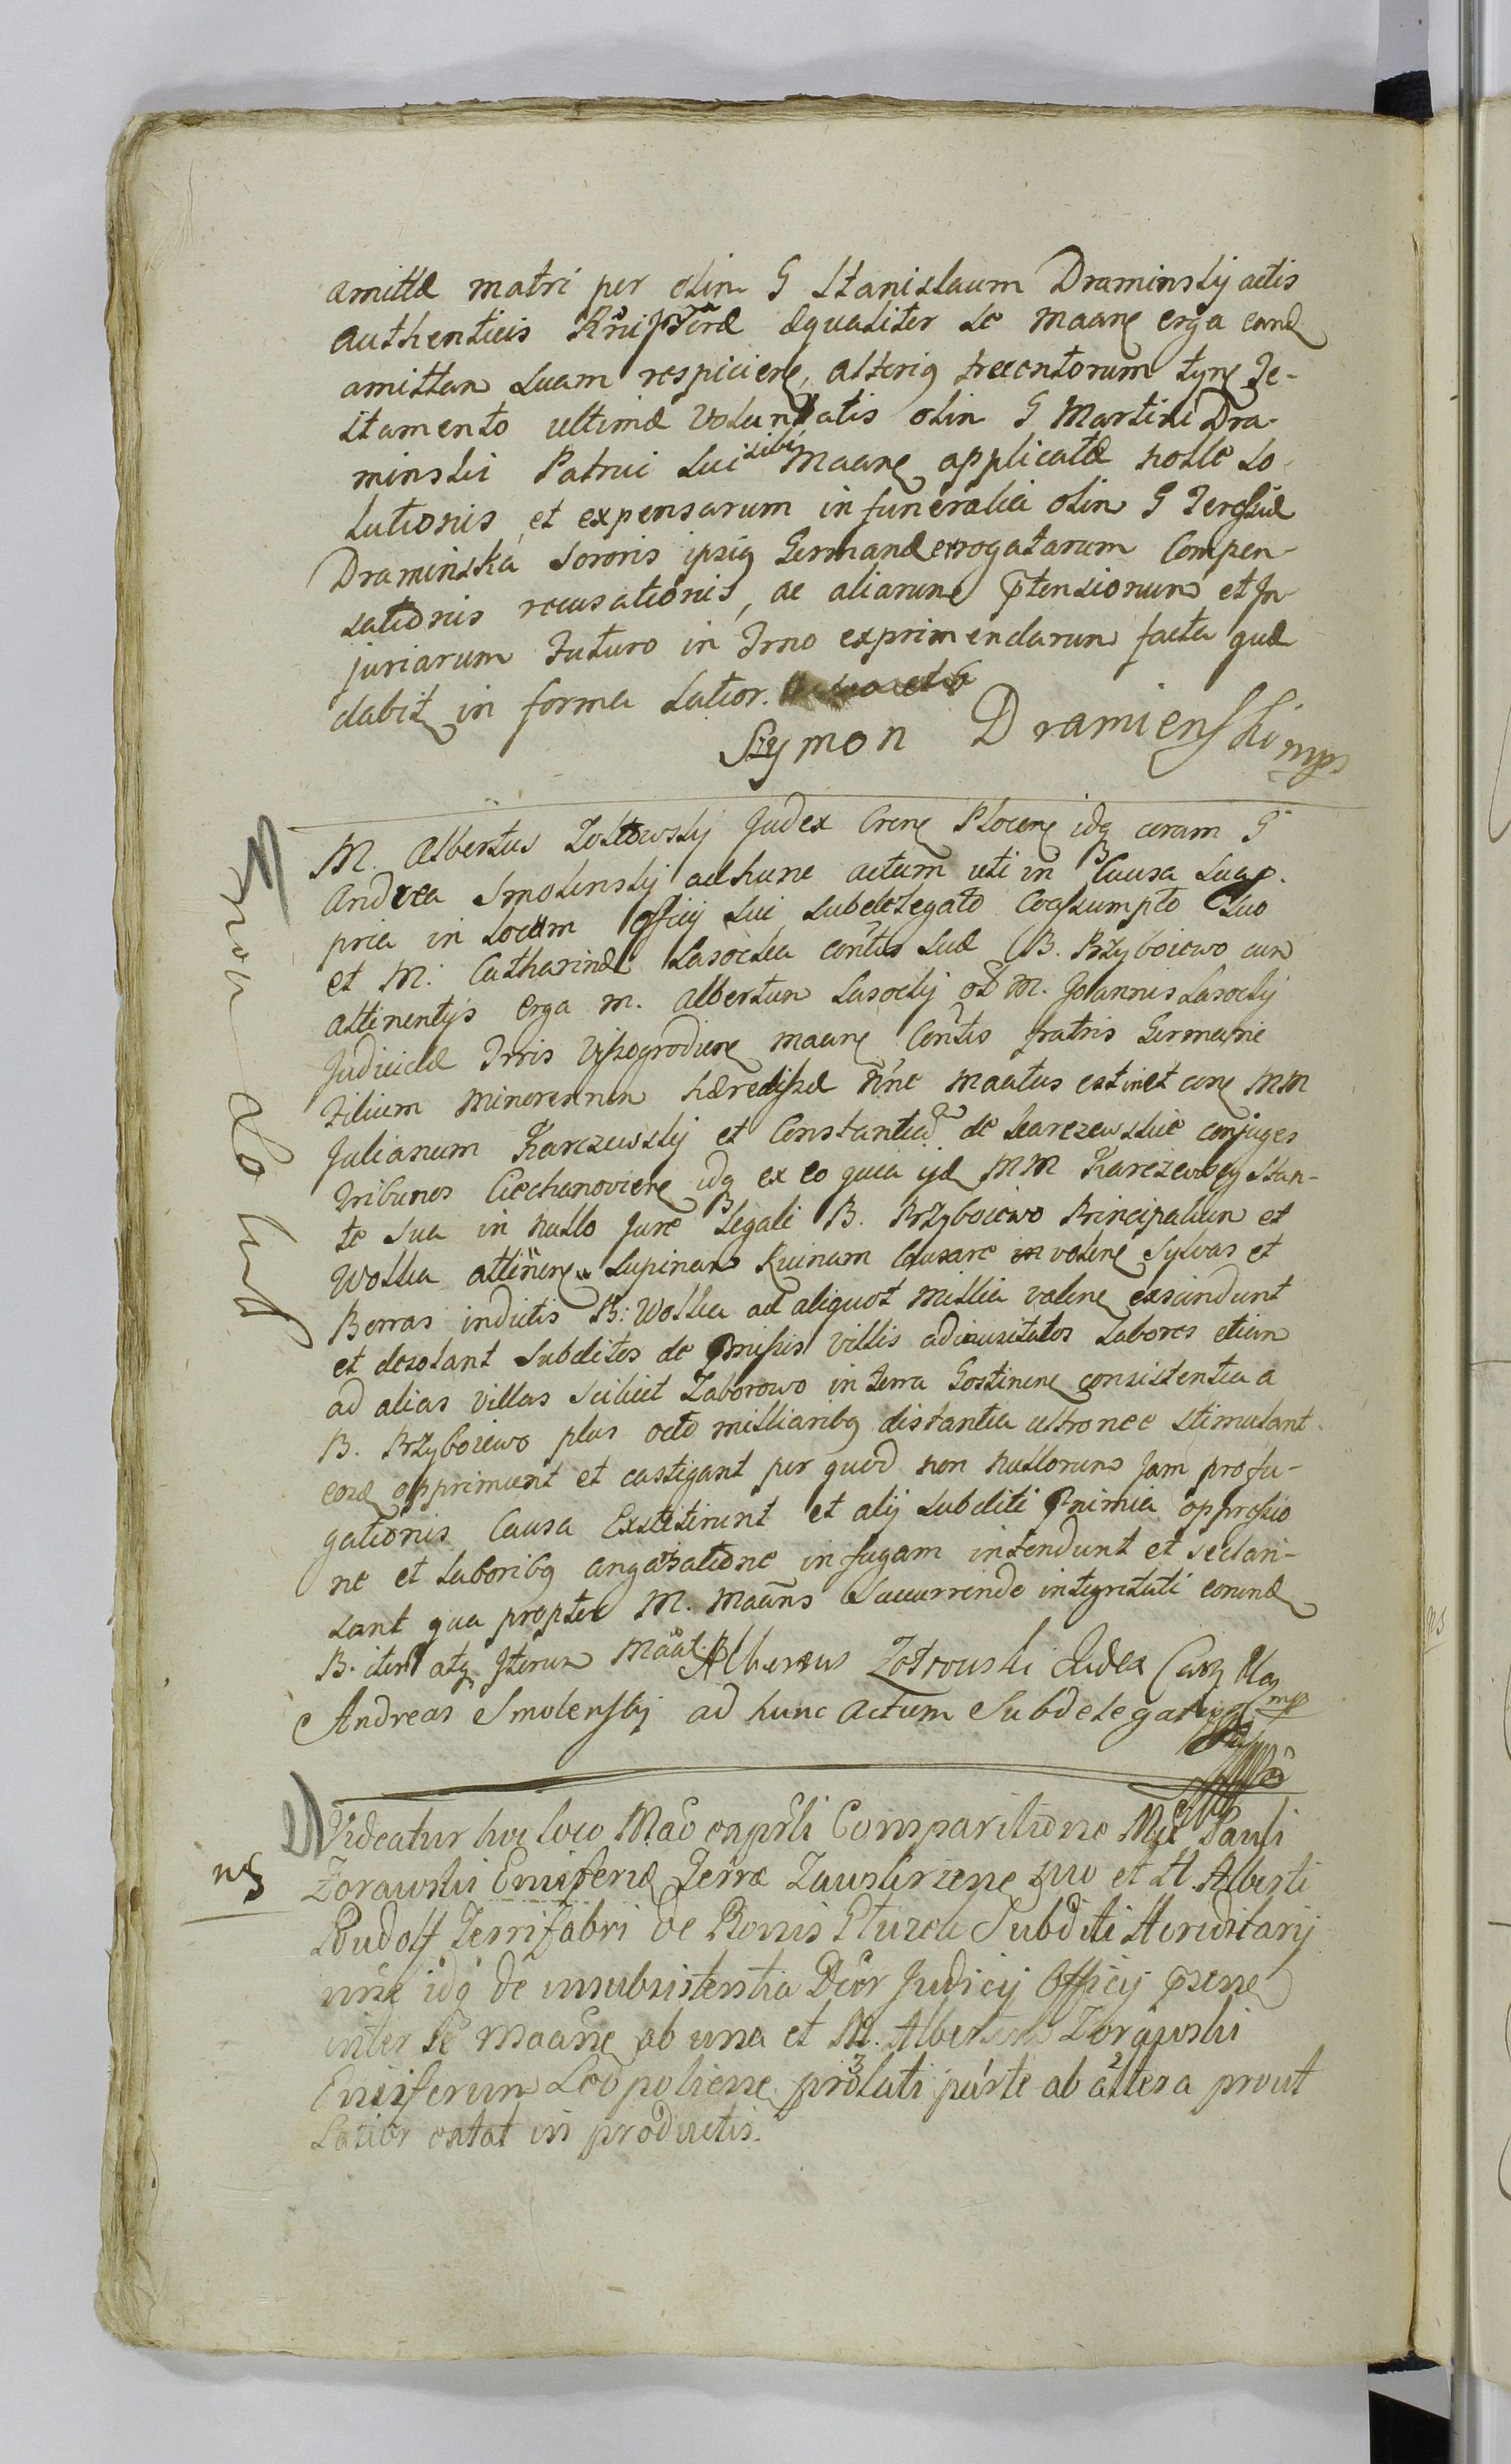 amittæ matri per olim G Stanislaum Draminskij actis
authenticis æqualiter se maane erga eand
amittan suam respiciene, alteriq trecentorum tyne Te-
stamento ultimæ Voluntatis olin G Martini Dra-
minski Patrui sui sibi Maane applicatæ nolle so-
lutionis, et expensarum in funeralia olin G Teressiæ
Draminska Sororis ipsiq Germanæ errogatarum Compen-
sationis recusationis, ac aliarum ptensionum et In-
juriarum Futuro in Trno exprimendarum facta quæ
dabit in forma Latior.
Szymon Dramienski mps
M. Albertus Zoltowskij Judex Crene Plocene idq coram G
Andrea Smolenskij ad hunc actum uti in Causa sua p-
pria in Locum Officij sui subdelegato Coassumpto Suo
et M. Catharinæ Lasocka contis suæ B. Przyboiewo cun
attinentijs erga M. Albertun Lasockij ol M. Joannis Lasockij
Judicidæ Trris Wyszogrodiene maane Contis fratris Germani
Filium minorennen hæredisæ nine maatus est in et cone MM
Julianum Karczewskij et Constantiaq de Karczewskie conjuges
Tribunos Ciechanoviene idq ex eo quia ijdæ MM Karczewscy stan-
te sua in nullo Jure Legali B. Przyboiewo Principaliun et
Wolka attinene supinans Ruinam Causare in volene Sylvas et
Borras in dictis B: Wolka ad aliquot millia valene exscindunt
et desolant subditos de pmissis villis ad inusitatos labores etian
ad alias villas scilicet Zaborowo in terra Gostinene consistentia a
B. Przyboiewo plus octo milliaribq distantia ultronee stimulant
eosdæ opprimunt et castigant per quod non nullorum Jam profu-
gationis Causa Exstiterunt et alij subditi pnimia oppressio
ne et laboribq angarisatione in fugam intendunt et declari-
sant qua propter M. Maans Succurrendo integritati eorundæ
B. iteru atq Iterun Maat. Albertus Zotowski Judex
Andreas Smolenskij ad hunc Actum Subdelegatus mps
Videatur hoc loco Mao exprsli Comparitione Mgæ Pauli
ns
Zorawski Ensiferiæ Terræ Zawskrzene suo et H. Alberti
Rudolf Ferrifabri de Bonis Gluzek Subditi Hereditarij
nine idq de insubsistentia Decr Judicij Officij psene
inter se Maane ab una et M. Albertum Zorawski
Ensiferum Leopoliene prolati parte ab altera prout
Latior extat in productis.